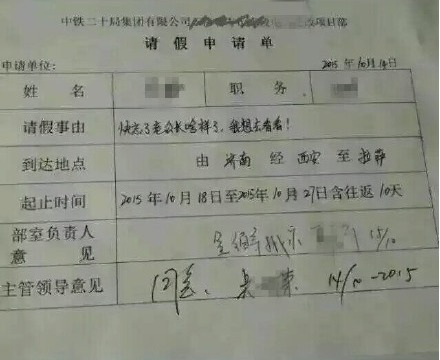 中铁二十局集团有限公司 改项目部
请假申请单
申请单位： 2015年10月14日
姓名 职务
请假事由 快忘了老公长啥样了，我想去看看！
到达地点 由 济南 经 西安 至 拉萨
起止时间 2015年10月18日至2015年10月27日含往返10天
部室负责人
意见 15/10
主管领导意见 同意、 14/10-2015